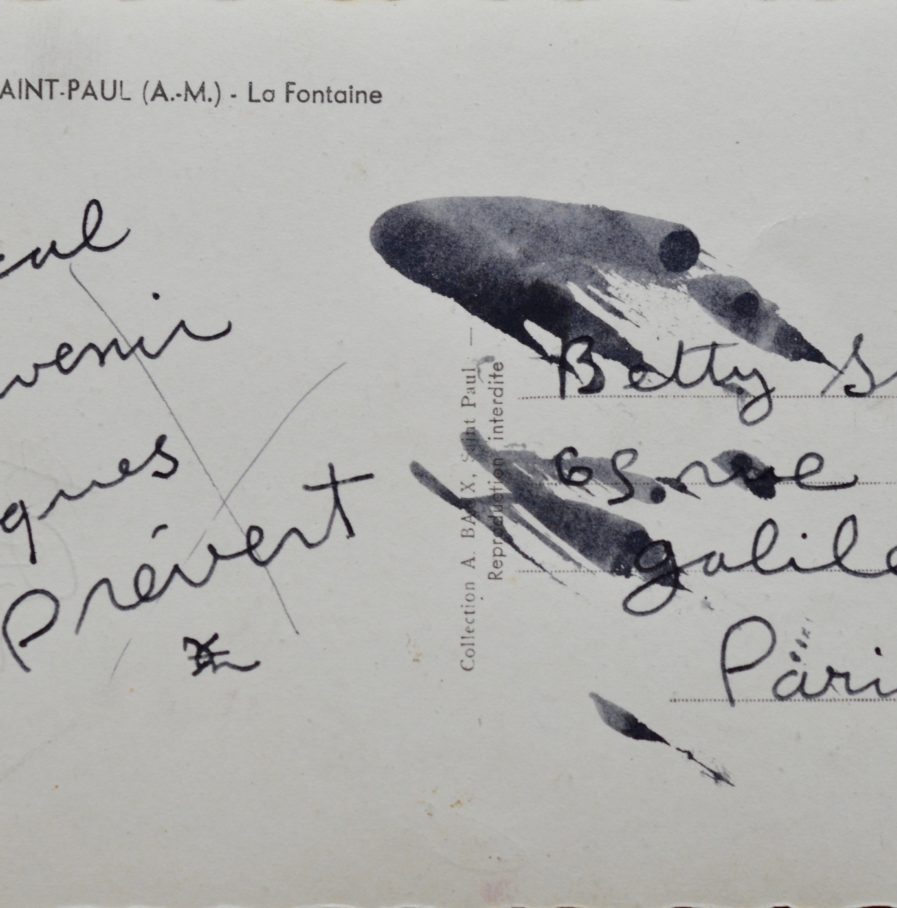 AINT-PAUL (A.-M.) - La Fontaine
venir
ques
Prévert
Collection A. BAIX, Saint Paul —
Reproduction interdite
Betty S
65. rue
galile
Pari